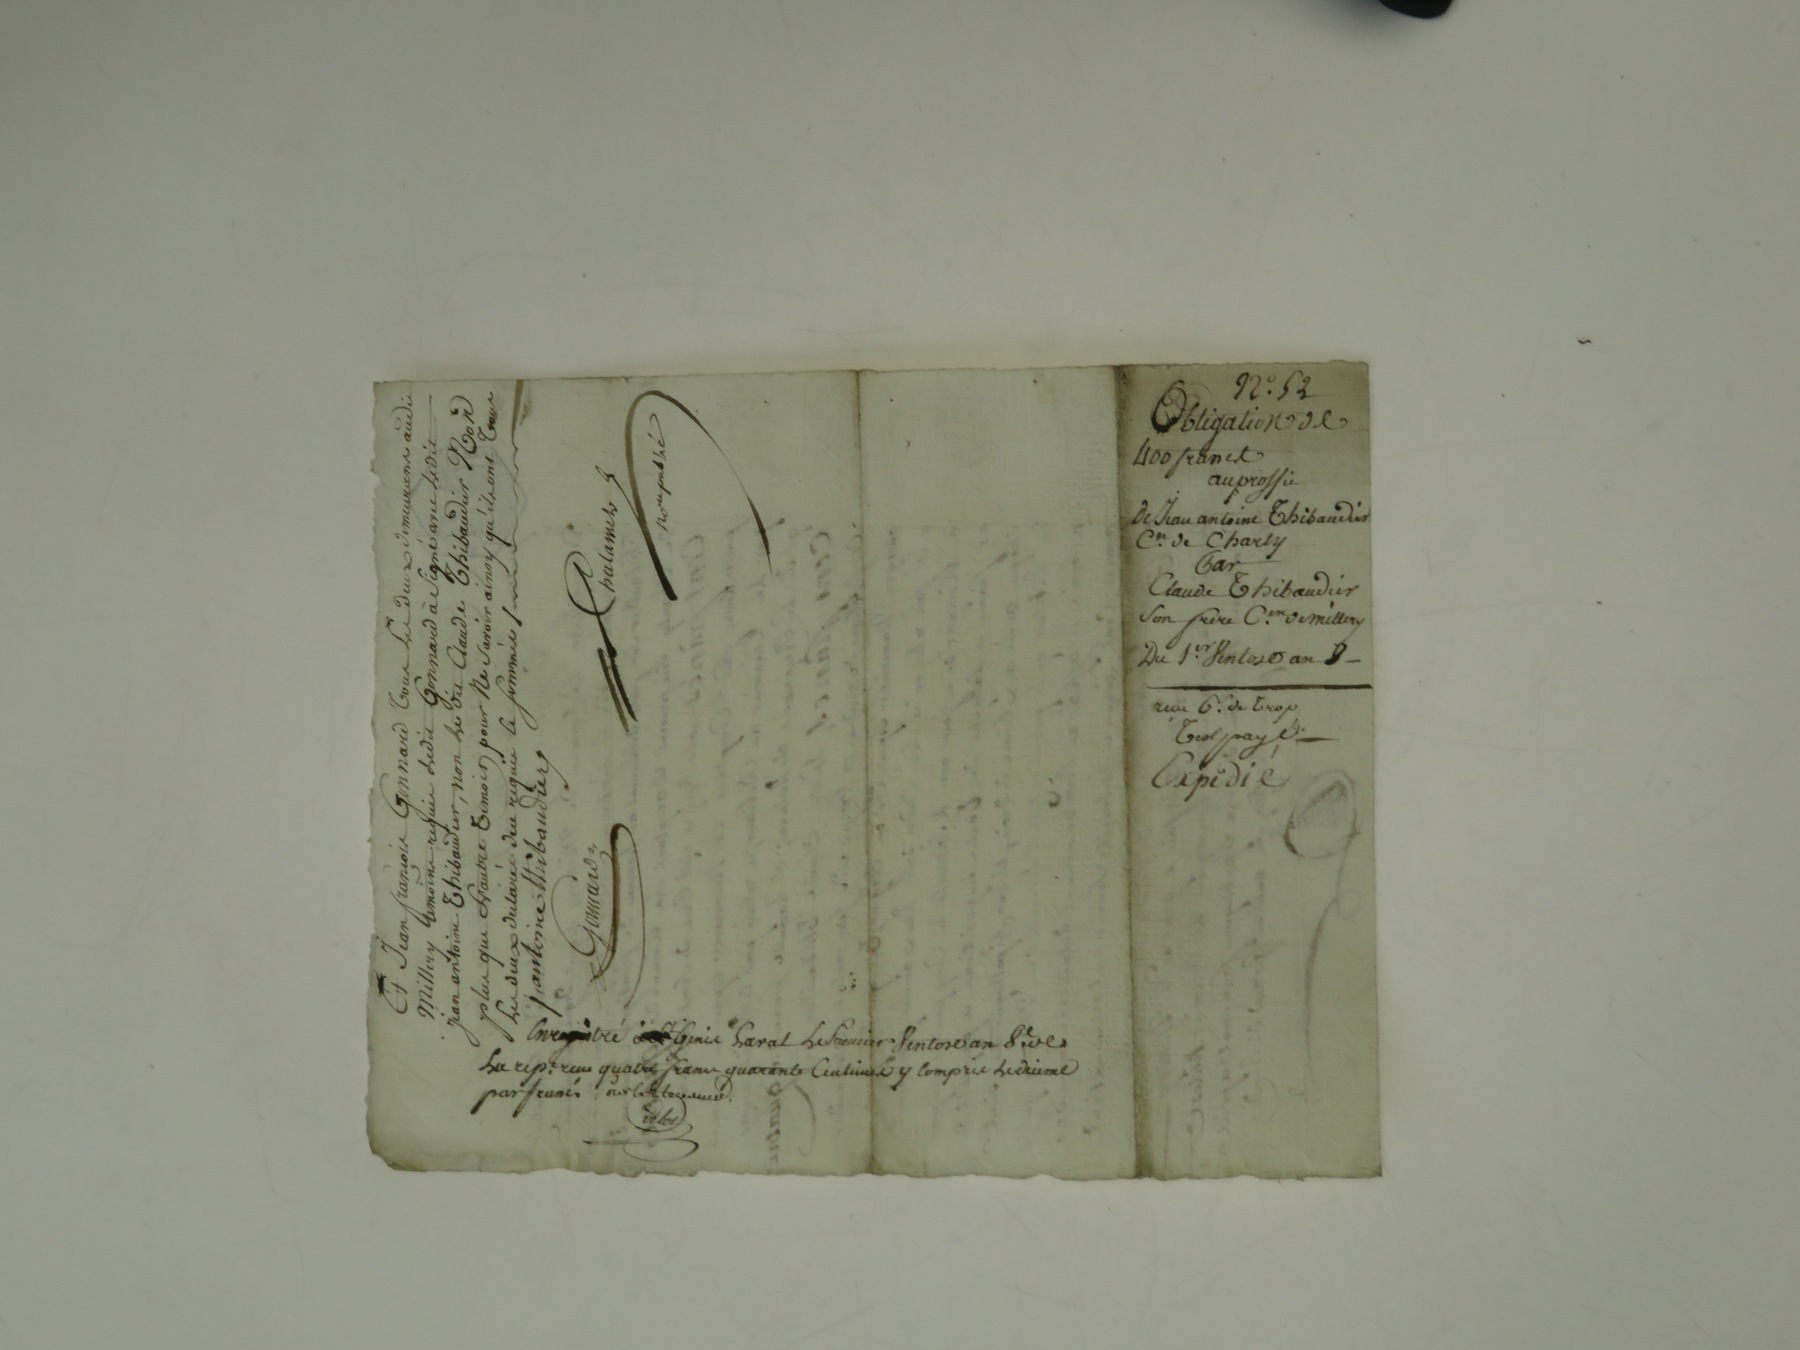 Et Jean françois Gonnard tous les deux demeurans audit
Millery témoins requis ledit Gonnard à signé avec ledit
jean antoine Thibaudier, non ledit Claude Thibaudier Non
plus que l'autre témoin pour ne savoir ainsy qu'ils ont tous
les deux déclaré deu requis et sommés
j antoine thibaudier
Gonnard
Chalamel
No.re publié
Enregistré à Genis Laval le premier Ventose an 8.
Lu rep. reçu quatre francs quarante Centimes y compris le dixieme
par franc
N.º 52
Obligation de
400 francs
au proffit
de Jean antoine Thibaudier
C.en de Charly
Par
Claude Thibaudier
son frère C.en de millery
Du 1.er Ventose an 8
reçu 6.s de trop
Tout payé
Expédié